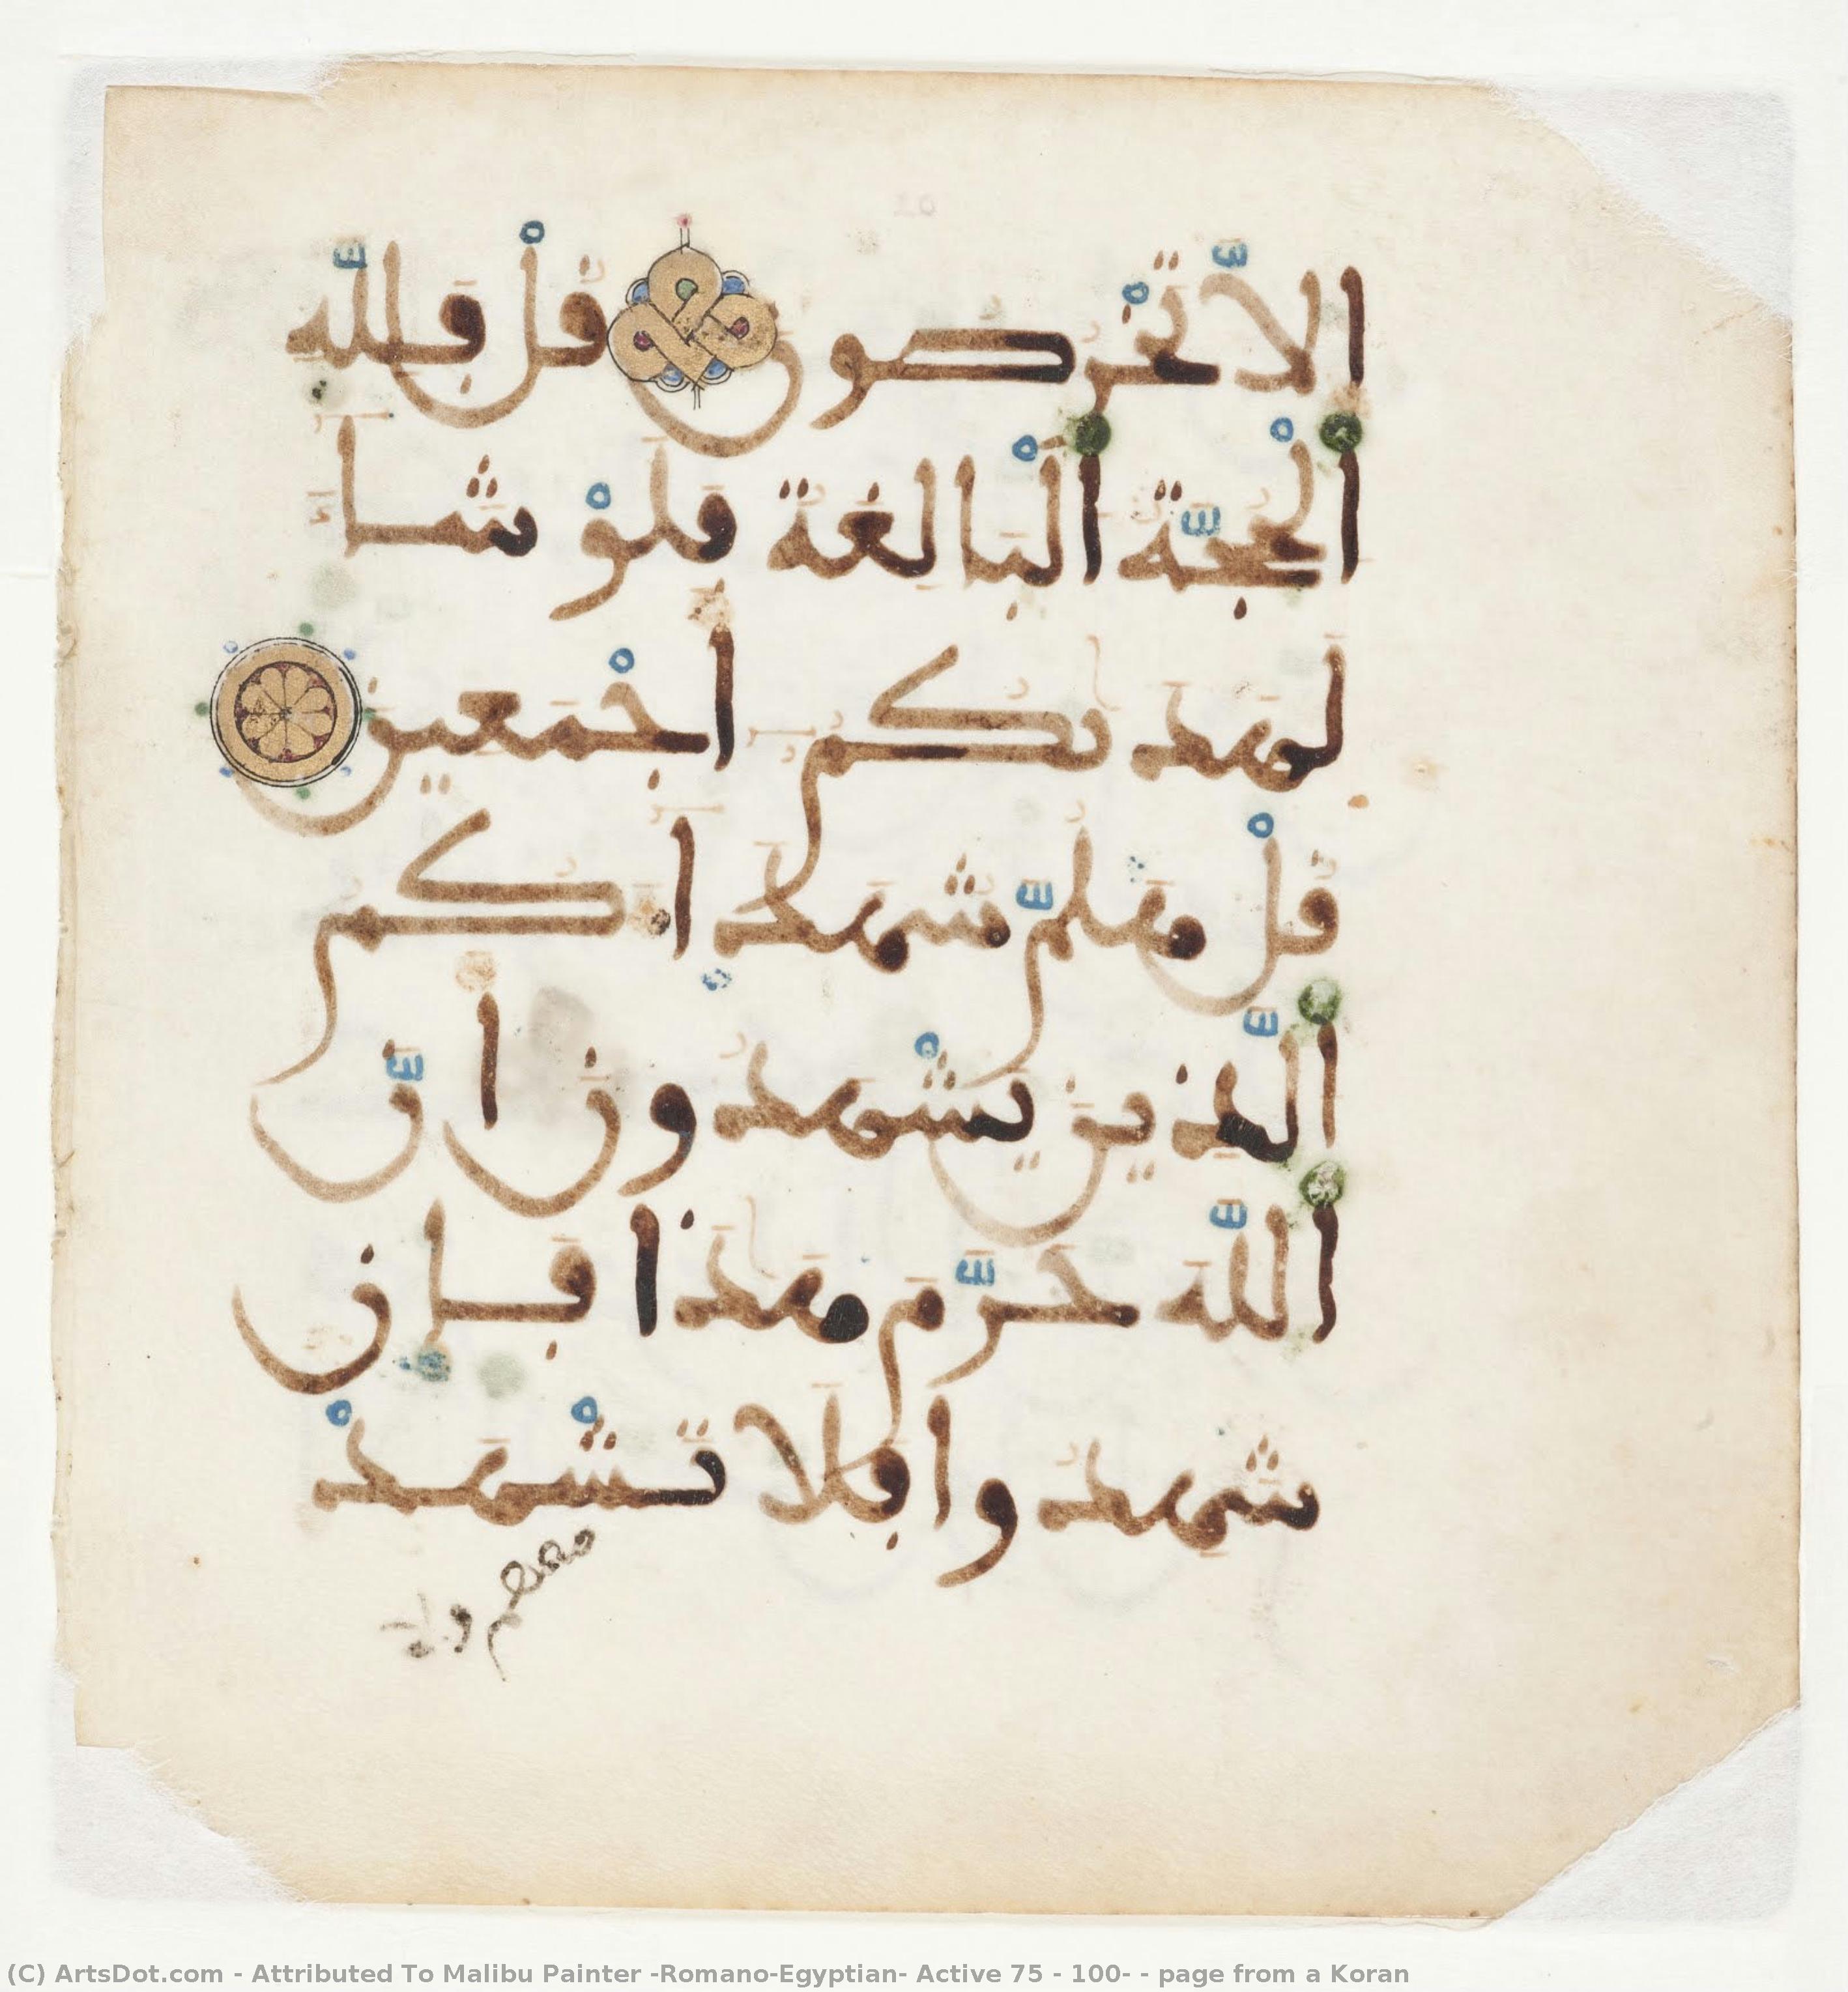 الا تخرصون قل فلله
الحجة البالغة فلو شا
لهديكم أجمعين
قل هلم شهدا كم
الذين يشهدون أن
الله حرم هذا فإن
شهدوا فلا تشهد
معهم ولا
(C) ArtsDot.com - Attributed To Malibu Painter -Romano-Egyptian- Active 75 - 100- - page from a Koran